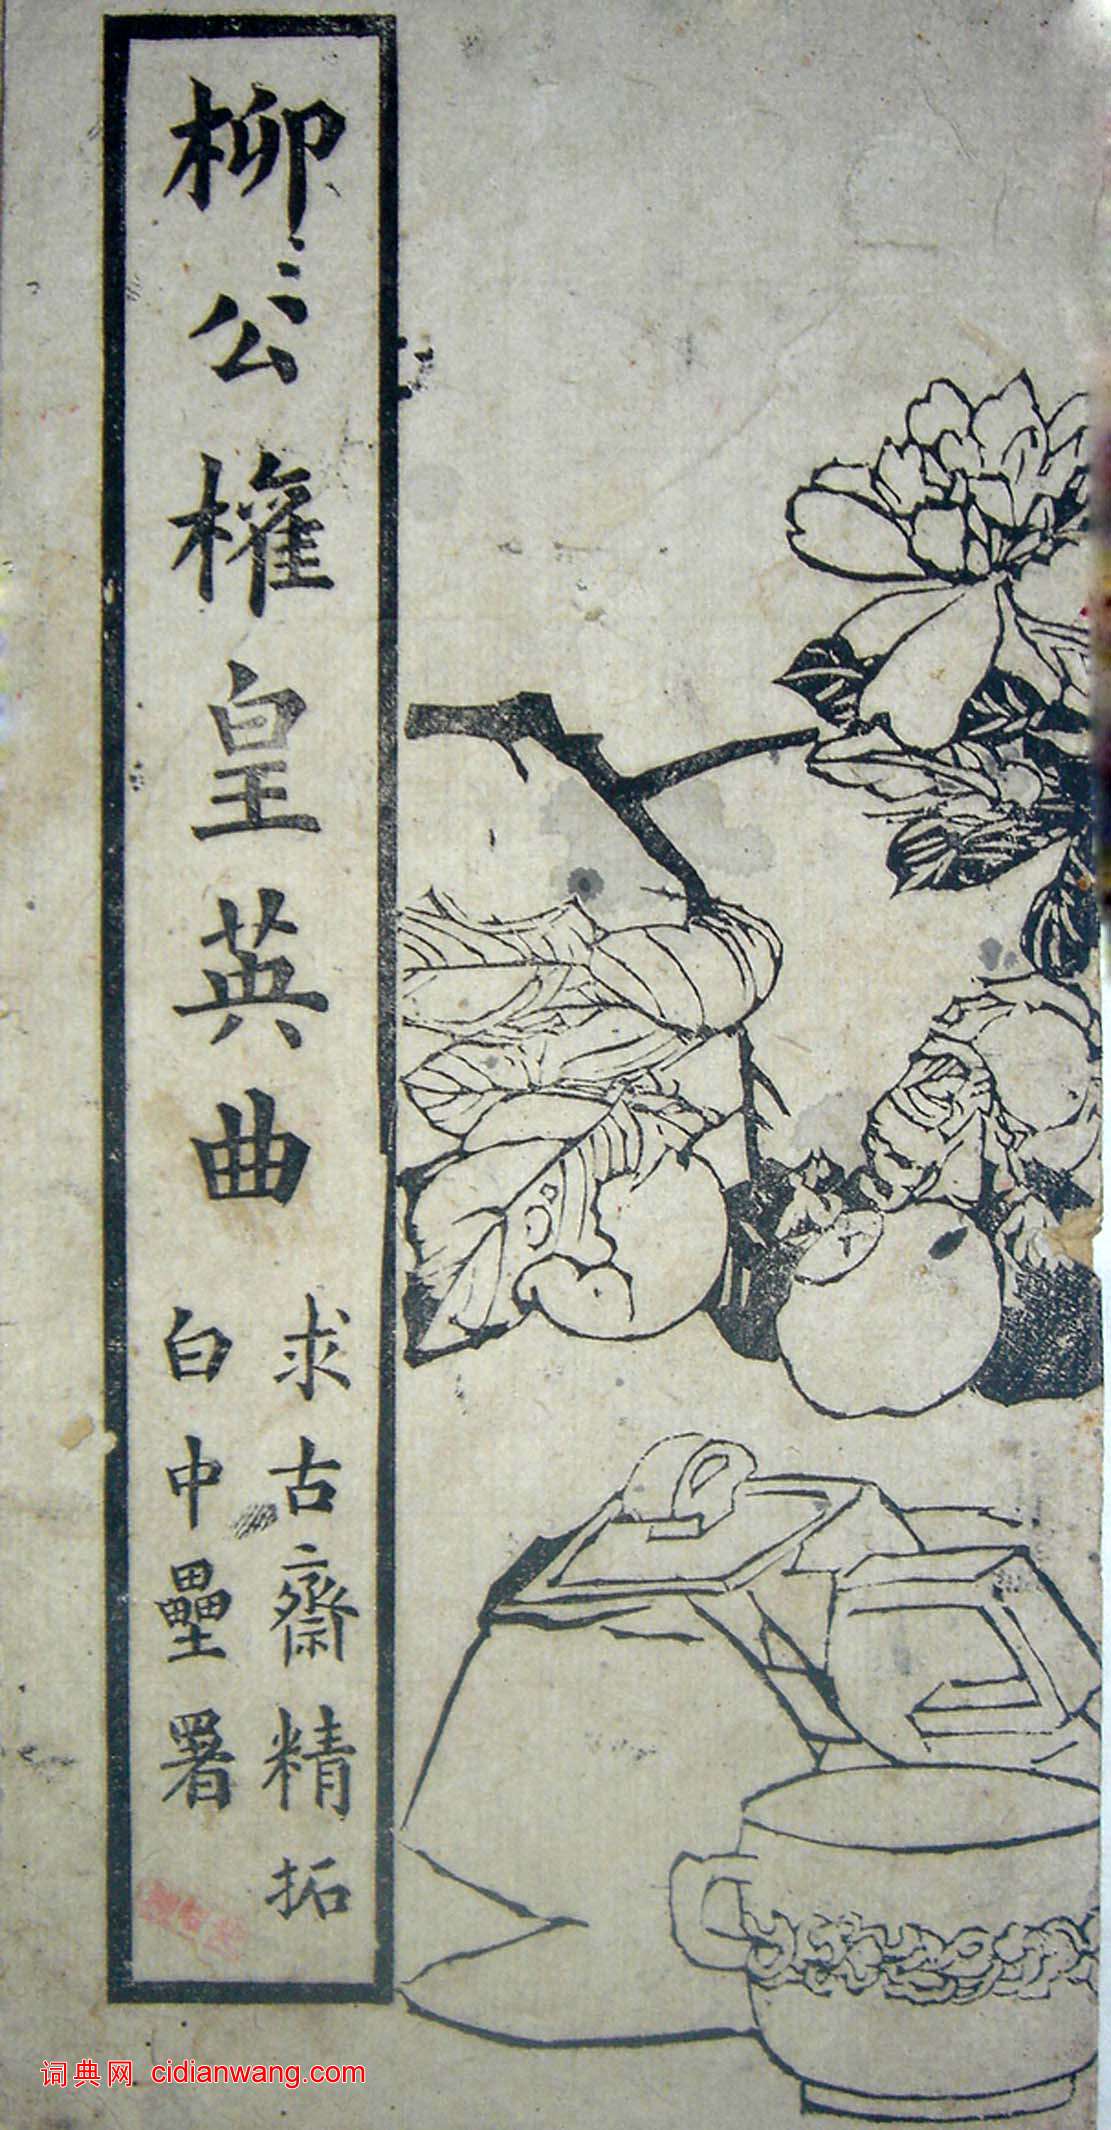 柳公權皇英曲
求古齋精拓
白中壘署
词典网 cidianwang.com